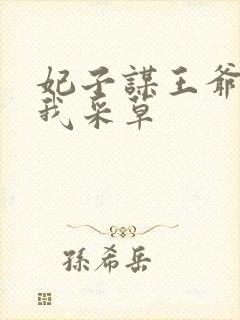 妃子謀王爺
我采草
孫希岳